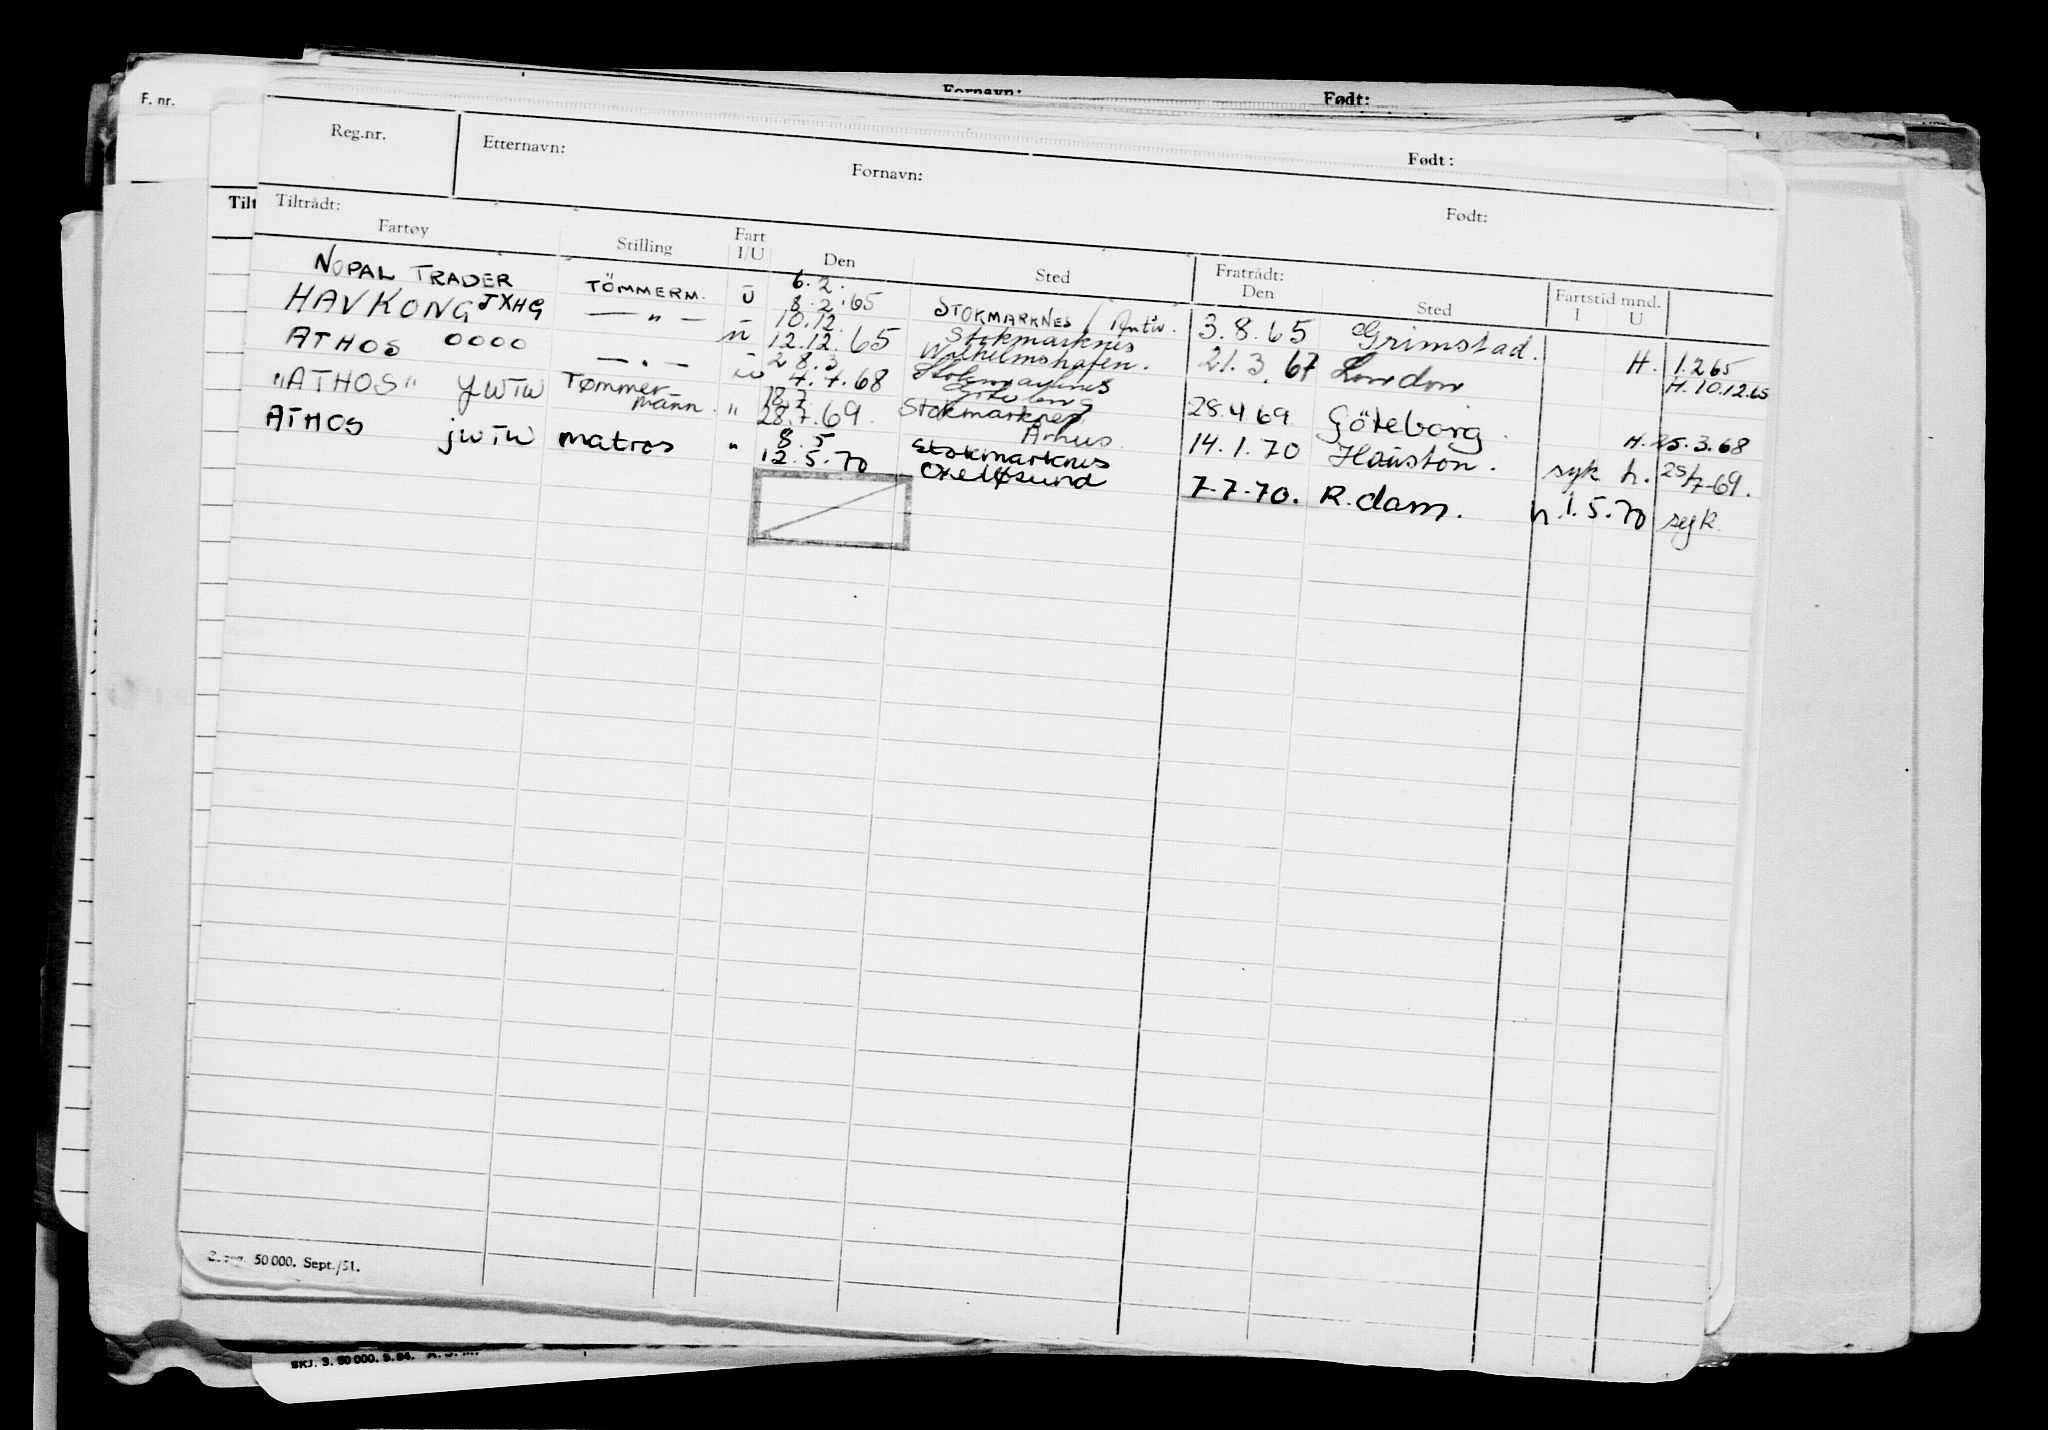 Fornavn: Født:
F. nr.
Født:
Reg.nr. Etternavn: Fornavn: Født:
Tilt
Tiltrådt: Fratrådt: Fartstid mnd.
Fartøy Stilling Fart I/U Den Sted Den Sted I U
NOPAL TRADER TÖMMERM. U 6.2. 8.2.65 STOKMARKNES / Antw. 3.8.65 Grimstad. H. 1.2.65
HAVKONG JXHG — " — 10.12. 12.12.65 Stokmarknes Wilhelmshafen. 21.3.67 London H. 10.12.65
ATHOS OOOO — " — 28.3 4.4.68 28.4.69 Göteborg. H. 25.3.68
"ATHOS" JWTW Tømmermann. " 18.7 28.7.69. Stokmarknes Århus. 14.1.70 Houston. syk h. 25/7-69.
ATHOS jWTW matros " 8.5 12.5.70 Stokmarknes Oxeløsund 7-7-70. R.dam. h. 1.5.70 syk.
50 000. Sept./51.
SKJ. 3. 50 000. 9.54.